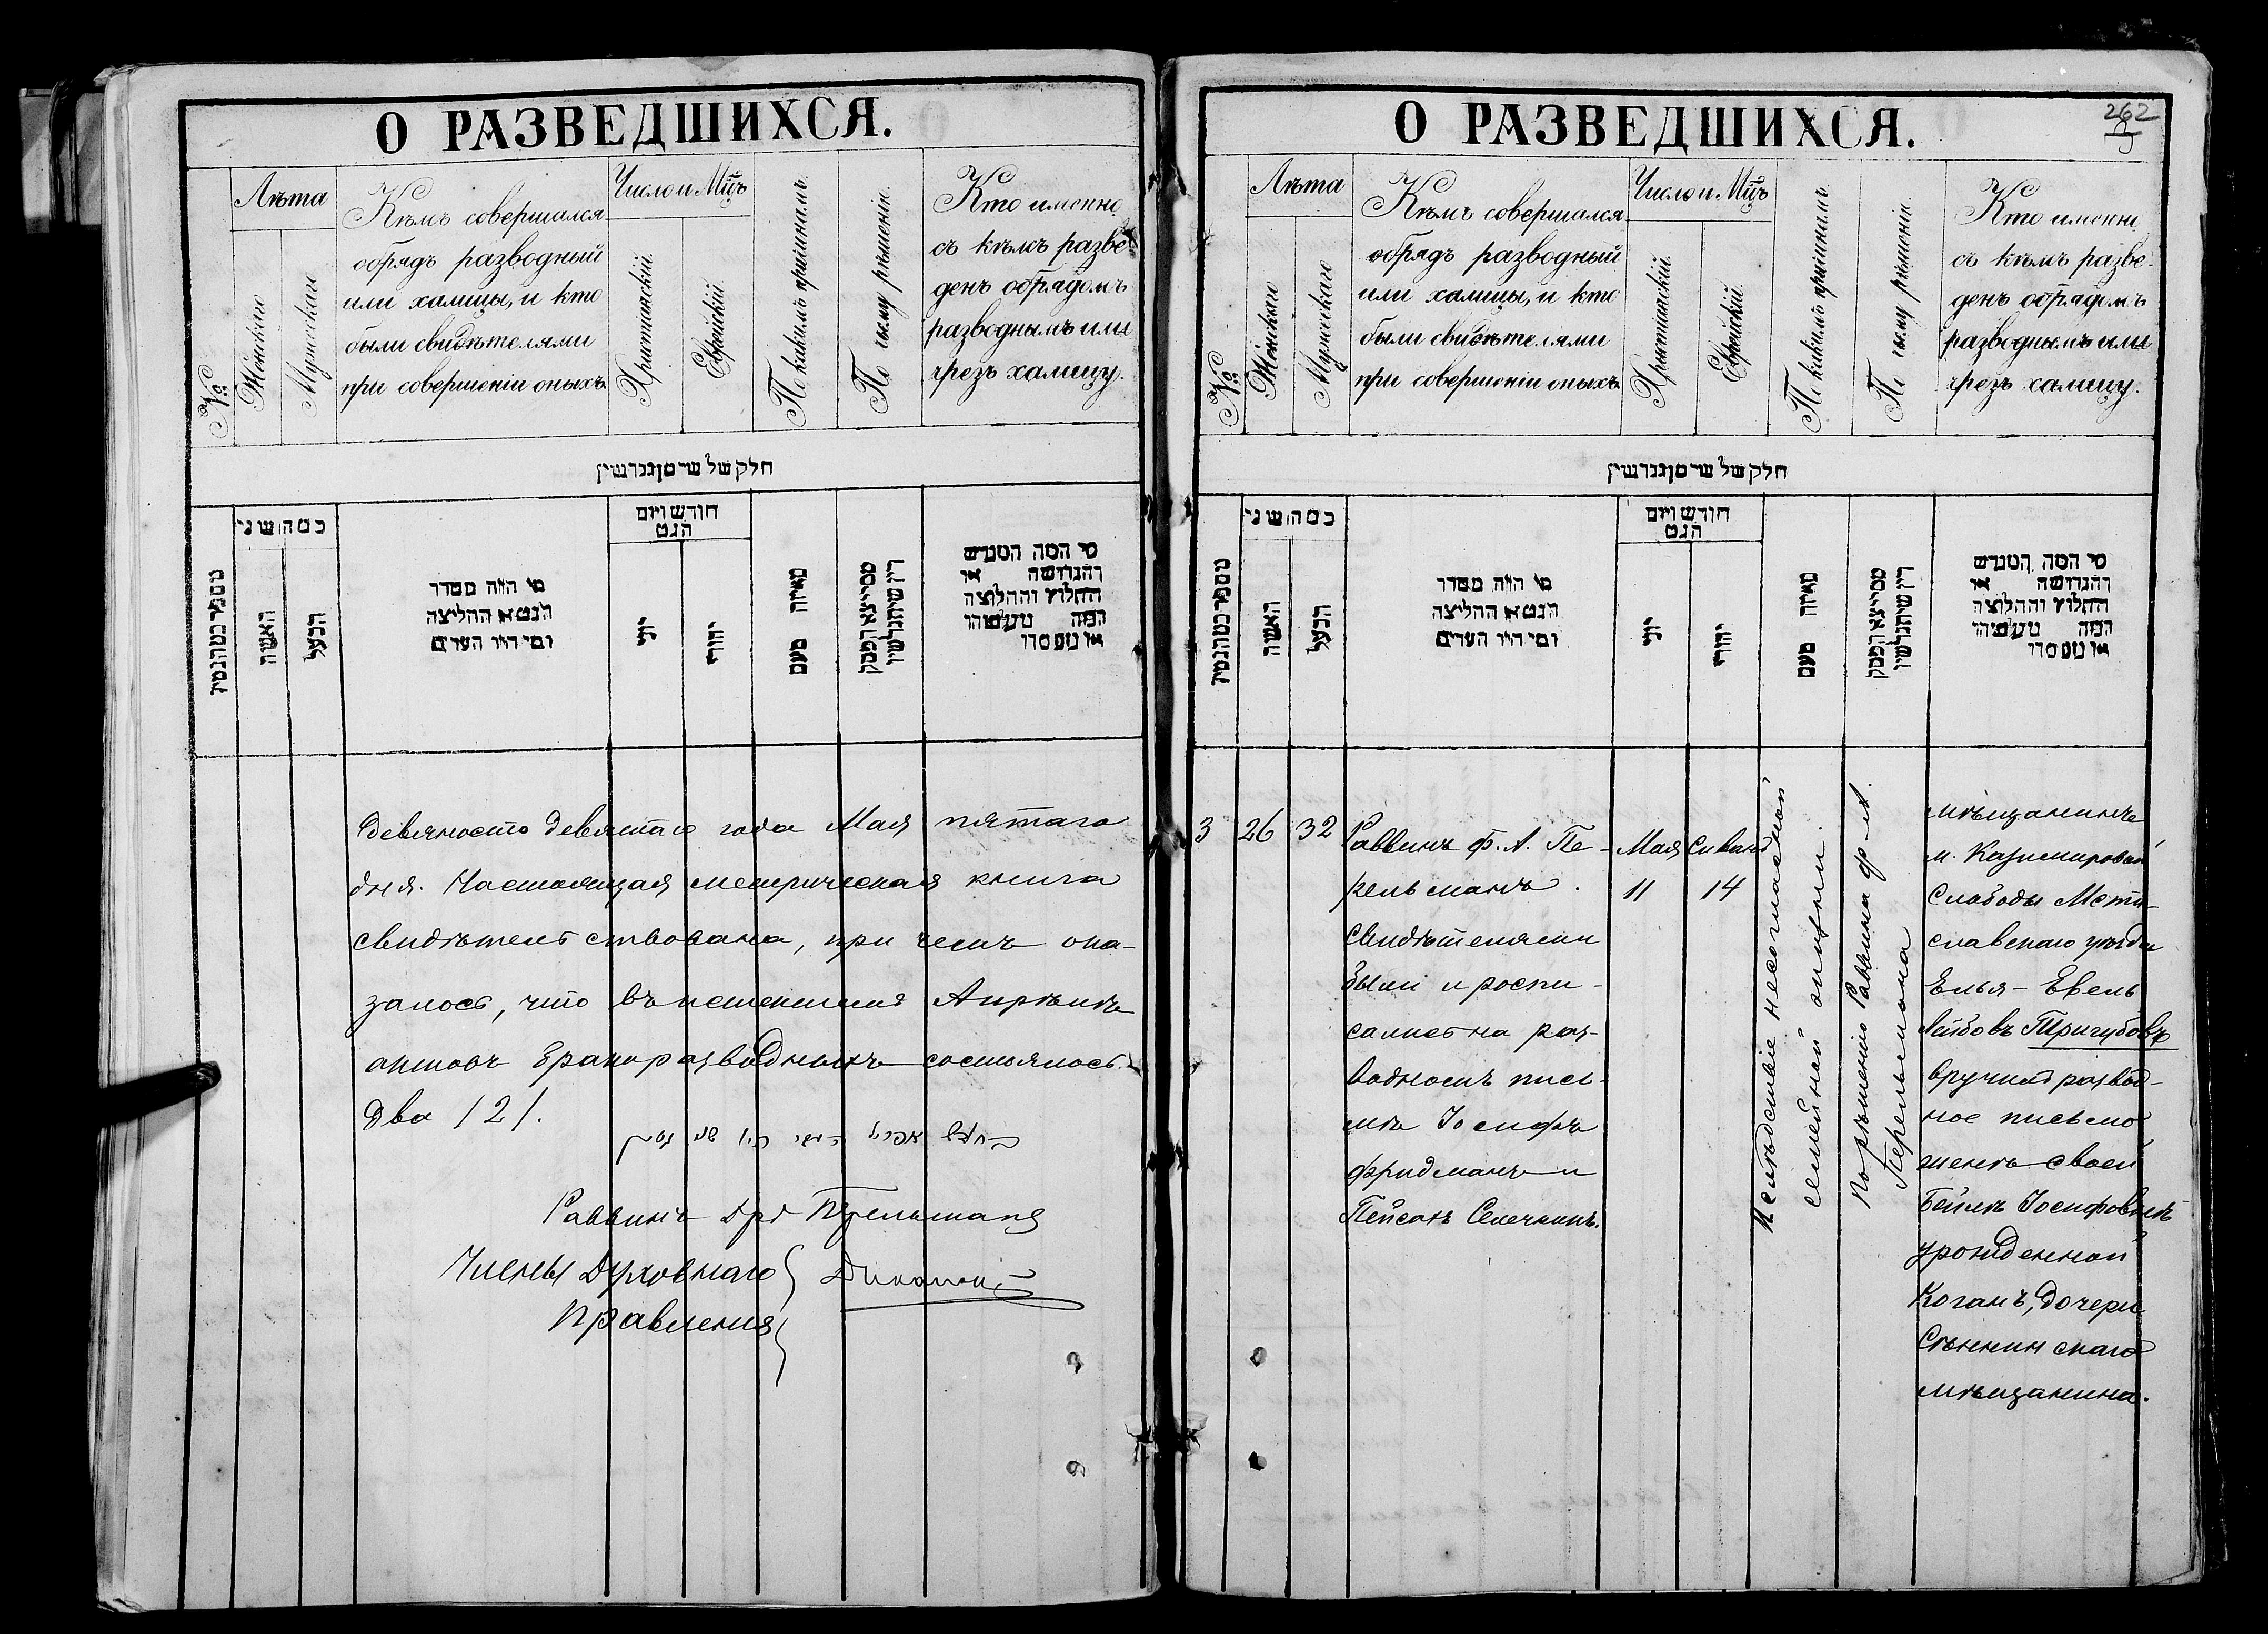 О РАЗВЕДШИХСЯ.
№
Лѣта
Женскаго
Мужескаго
Кѣмъ совершался
обрядъ разводный
или халицы, и кто
были свидѣтелями
при совершеніи оныхъ.
Число и Мѣцъ
Христіанскій.
Еврейскій.
По какимъ причинамъ.
По чьему рѣшенію.
Кто именно
съ кѣмъ разве
денъ обрядомъ
разводнымъ или
чрезъ халицу.
חלק של
כמה שני
האשה
הבעל
מי היה מסדר
הגט או החליצה
ומי היו העדים
חודש ויום
הגט
יוני
יהודי
מאיזה טעם
девяносто девятаго года Мая пятаго
дня. Настоящая метрическая книга
свидѣтельствована, при чемъ ока-
залось, что въ истекшемъ Апрѣлѣ
актовъ бракоразводныхъ состоялось
два /2/.
Раввинъ Перельманъ
Члены Духовнаго
Правленія
О РАЗВЕДШИХСЯ.
262
№
Лѣта
Женскаго
Мужескаго
Кѣмъ совершался
обрядъ разводный
или халицы, и кто
были свидѣтелями
при совершеніи оныхъ.
Число и Мѣцъ
Христіанскій.
Еврейскій.
По какимъ причинамъ.
По чьему рѣшенію.
Кто именно
съ кѣмъ разве-
денъ обрядомъ
разводнымъ или
чрезъ халицу.
חלק של
כמה שני
האשה
הבעל
מי היה מסדר
הגט או החליצה
ומי היו העדים
חודש ויום
הגט
יוני
יהודי
מאיזה טעם
3 26 32
Раввинъ Ф. А. Пе-
рельманъ.
свидѣтелями
были и роспи-
сались на раз-
водномъ пись-
мѣ Іосифъ
Фридманъ и
Пейсахъ Семечкинъ.
Мая
11
Сивана
14
Вслѣдствіе несогласной
семейной жизни.
По рѣшенію Раввина Ф. А.
Перельмана
мѣщанинъ
м. Казимировой
Слободы Мсти-
славскаго уѣзда
Елья-Евель
Лейбовъ Тригубовъ
вручилъ развод-
ное письмо
женѣ своей
Бейлѣ Іосифовнѣ
урожденной
Коганъ, дочери
Сѣннинскаго
мѣщанина.